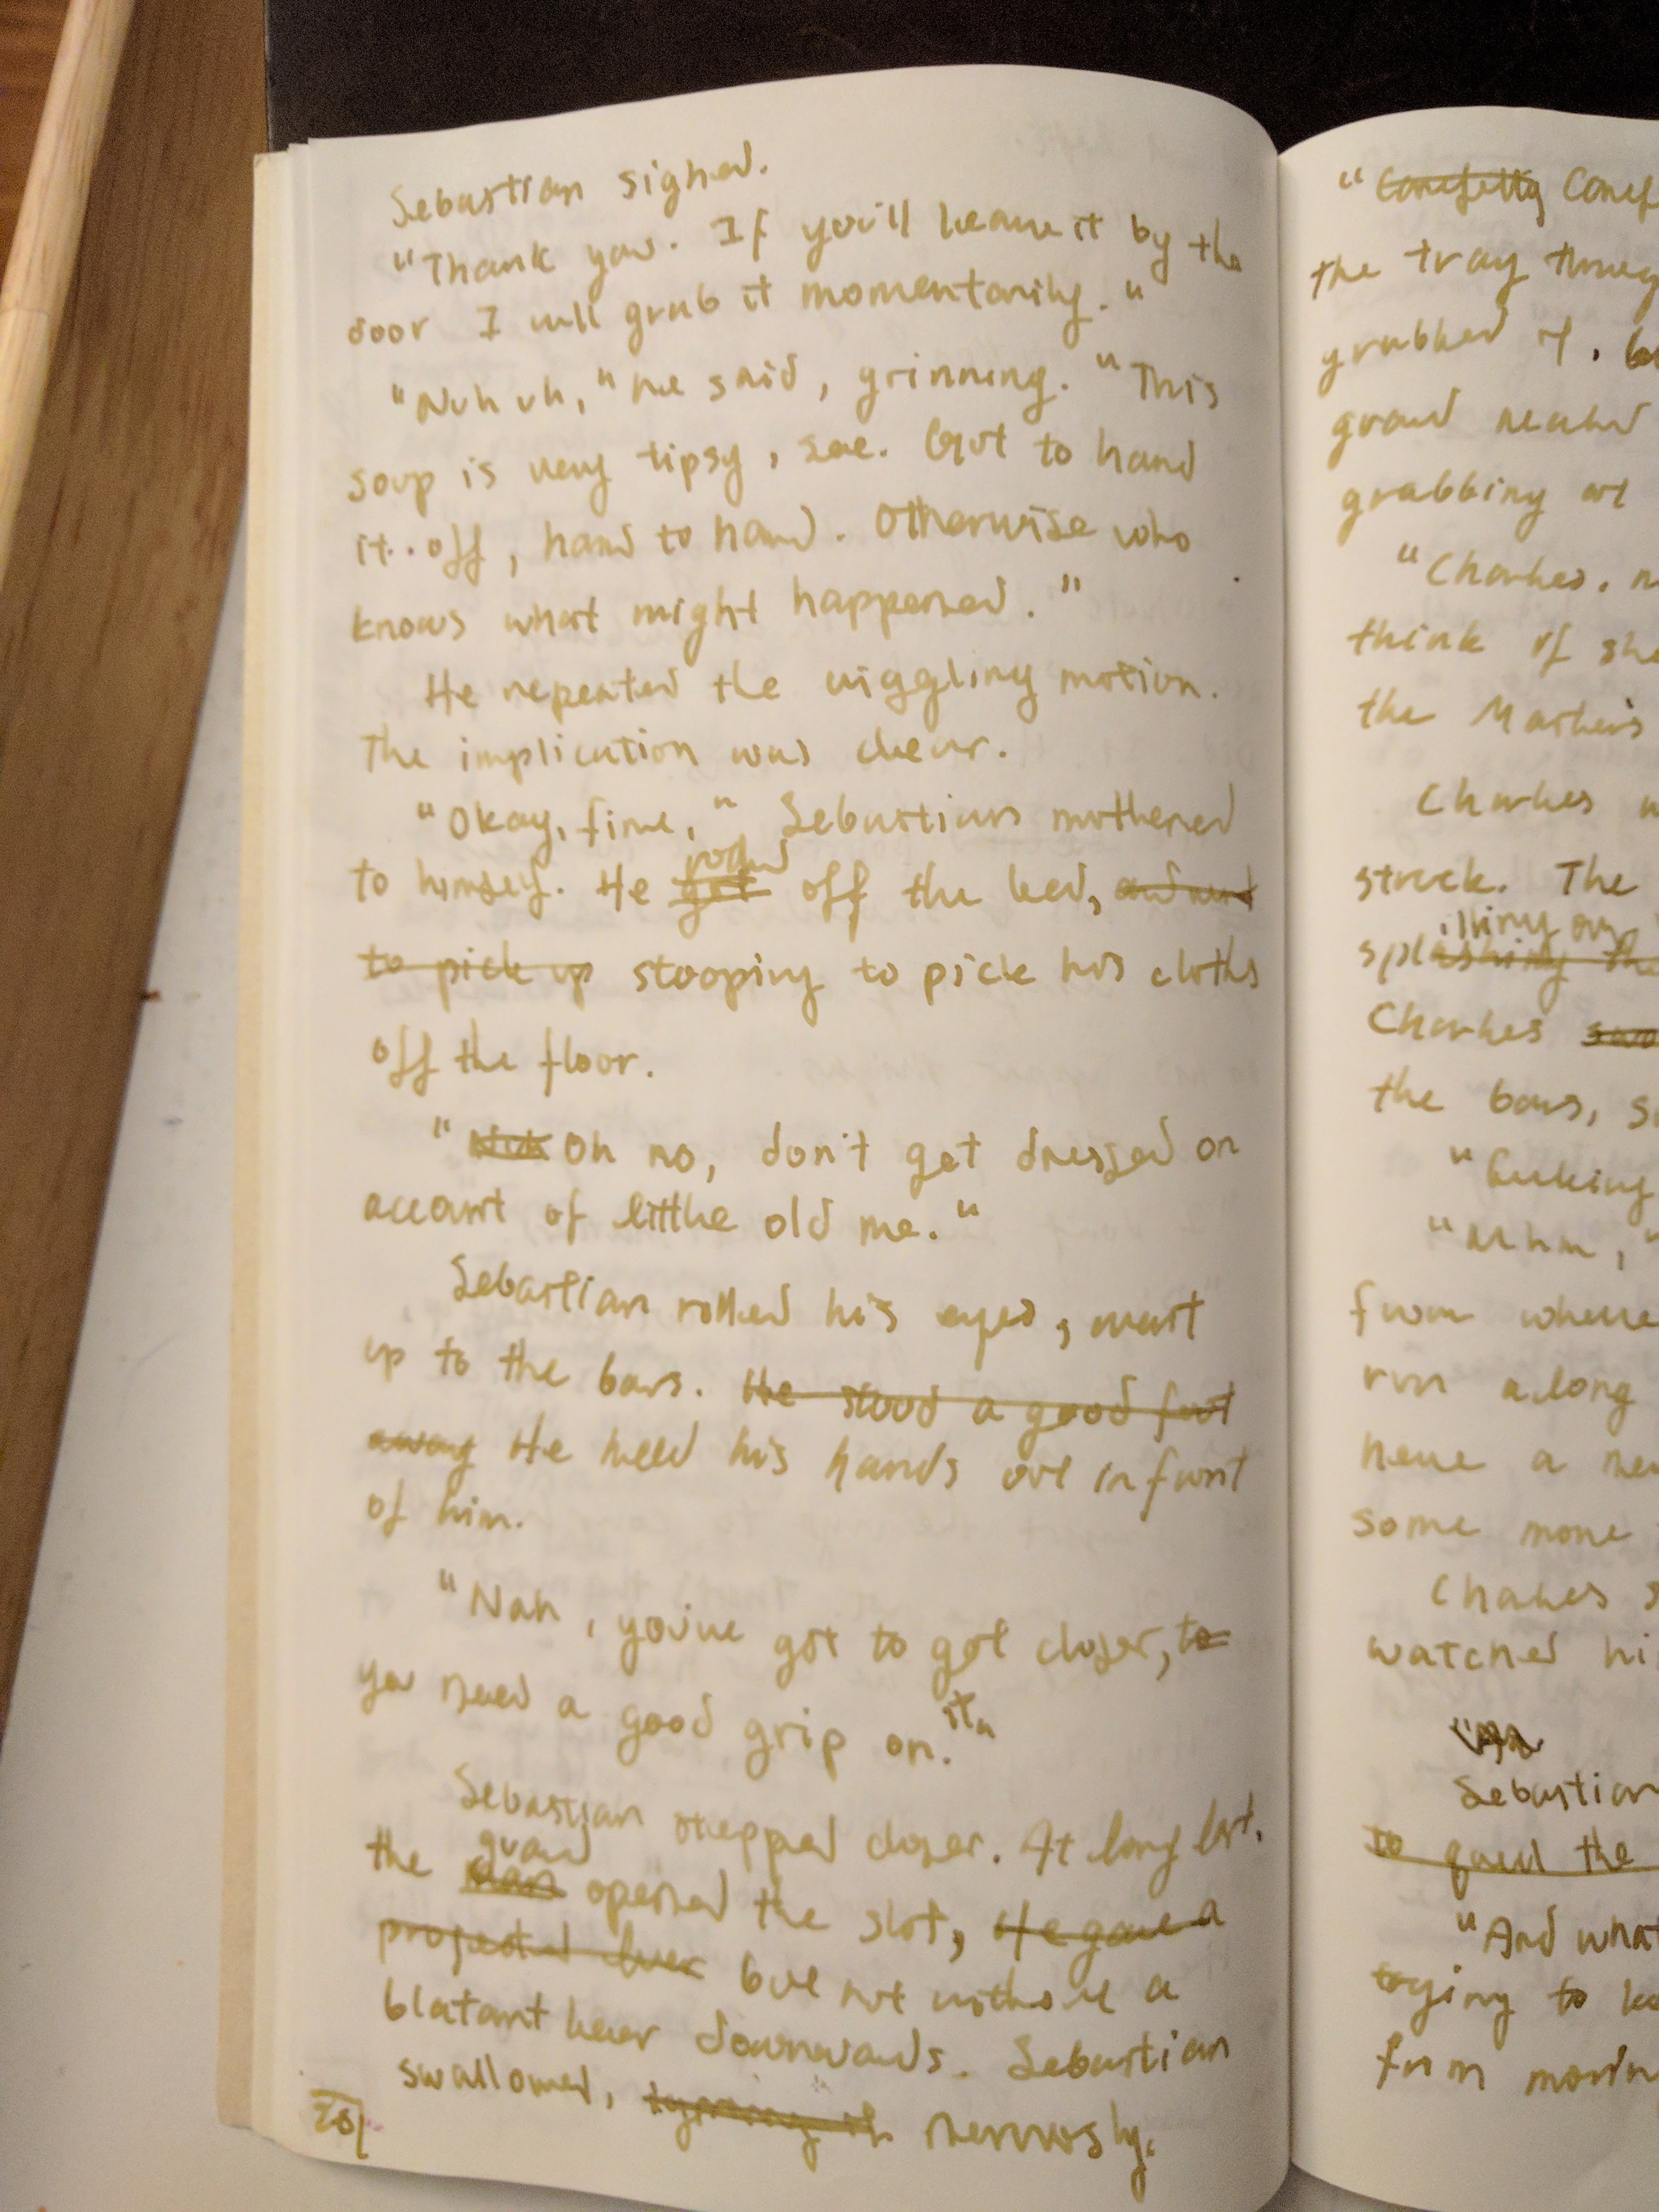 Sebastian sighed.
"Thank you. If you'll leave it by the
door I will grab it momentarily."
"Nuh uh," he said, grinning. "This
soup is very tipsy, see. Got to hand
it off, hand to hand. Otherwise who
knows what might happened."
He repeated the wiggling motion.
The implication was clear.
"Okay, fine," Sebastian muttered
to himself. He got rolled off the bed, and went
to pick up stooping to pick his cloths
off the floor.
"Nuh Oh no, don't get dressed on
account of little old me."
Sebastian rolled his eyes, went
up to the bars. He stood a good foot
away He held his hands out in front
of him.
"Nah, you've got to get closer, to
you need a good grip on it."
Sebastian stepped closer. At long last,
the guard opened the slot, He gave a
but not without a
blatant leer downwards. Sebastian
swallowed, nervously.
"Carefully Caref
the tray throug
grabbed it,
guard
grabbing at
"Charles,
think if she
the
Charles
struck. The
splashing the illing
Charles
the bars,
"Fucking
"Mhm,"
from where
run along
have a
some more
Charles s
watched hi
Sebastian
to the
"And what
trying to
from